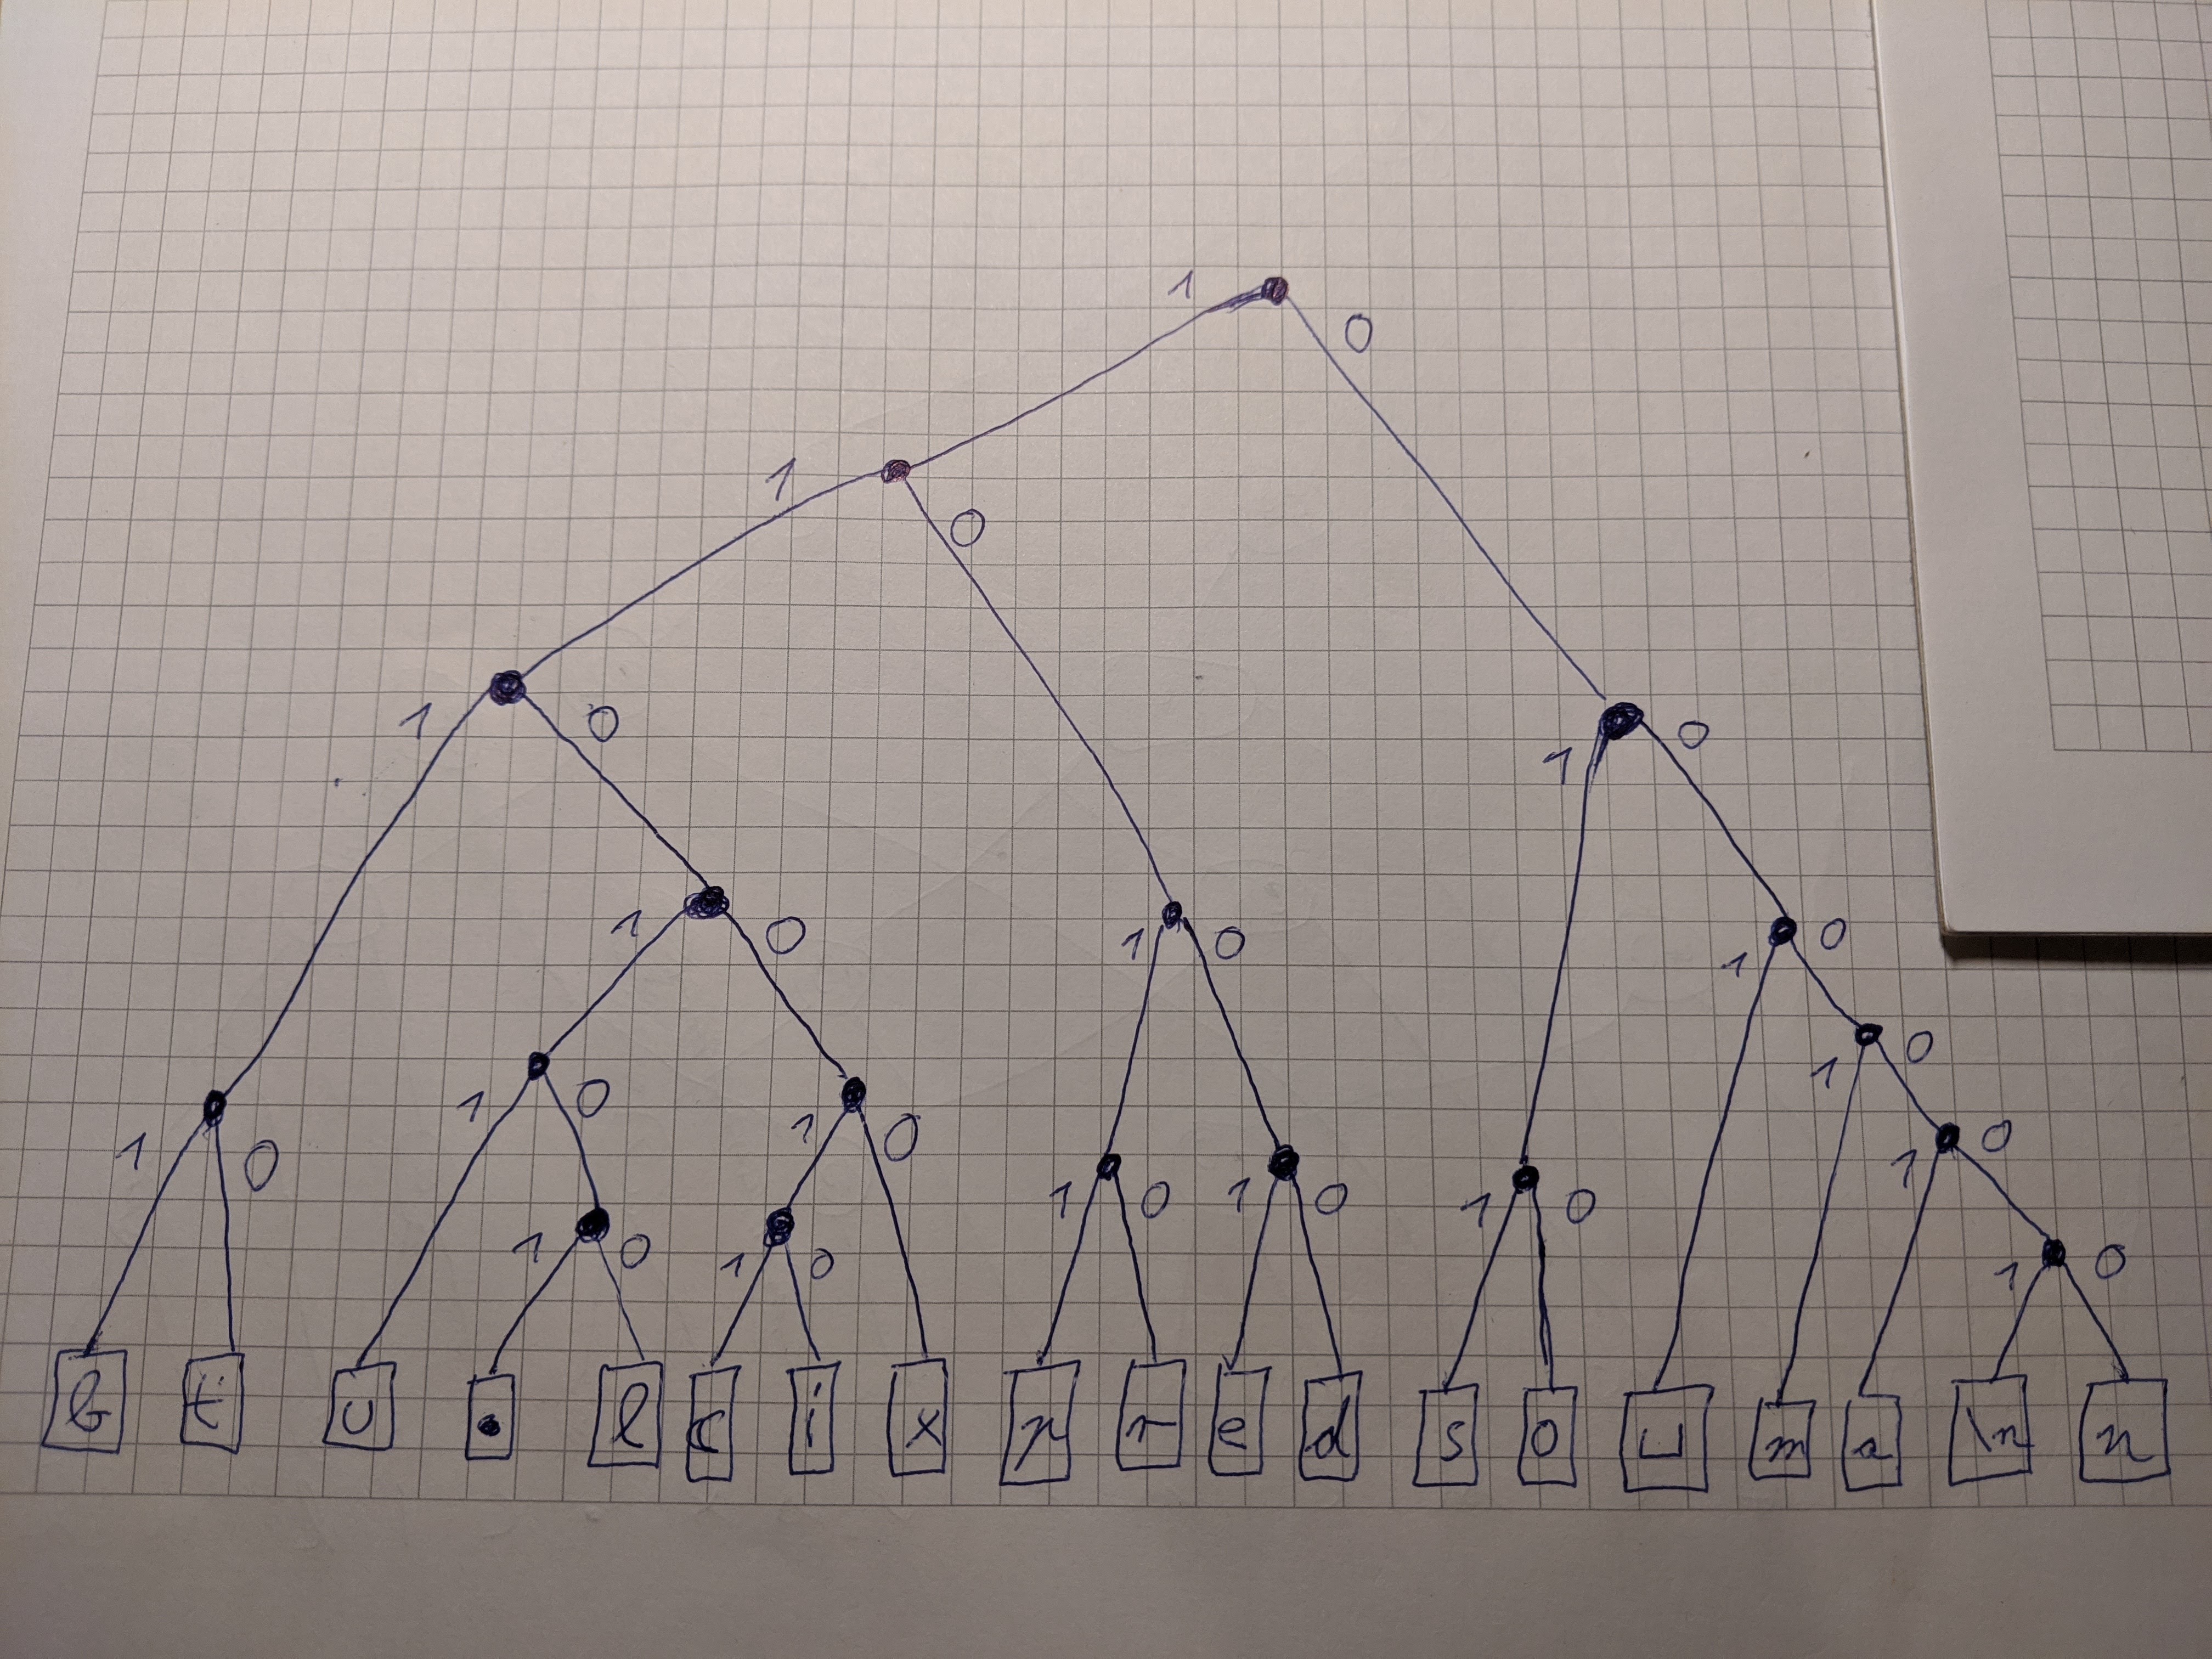 1 0
1 0
1 0 1 0
1 0 1 0 1 0
1 0 1 0 1 0
1 0 1 0 1 0 1 0 1 0
1 0 1 0 1 0
b t u . l c i x p r e d s o ␣ m a \n n